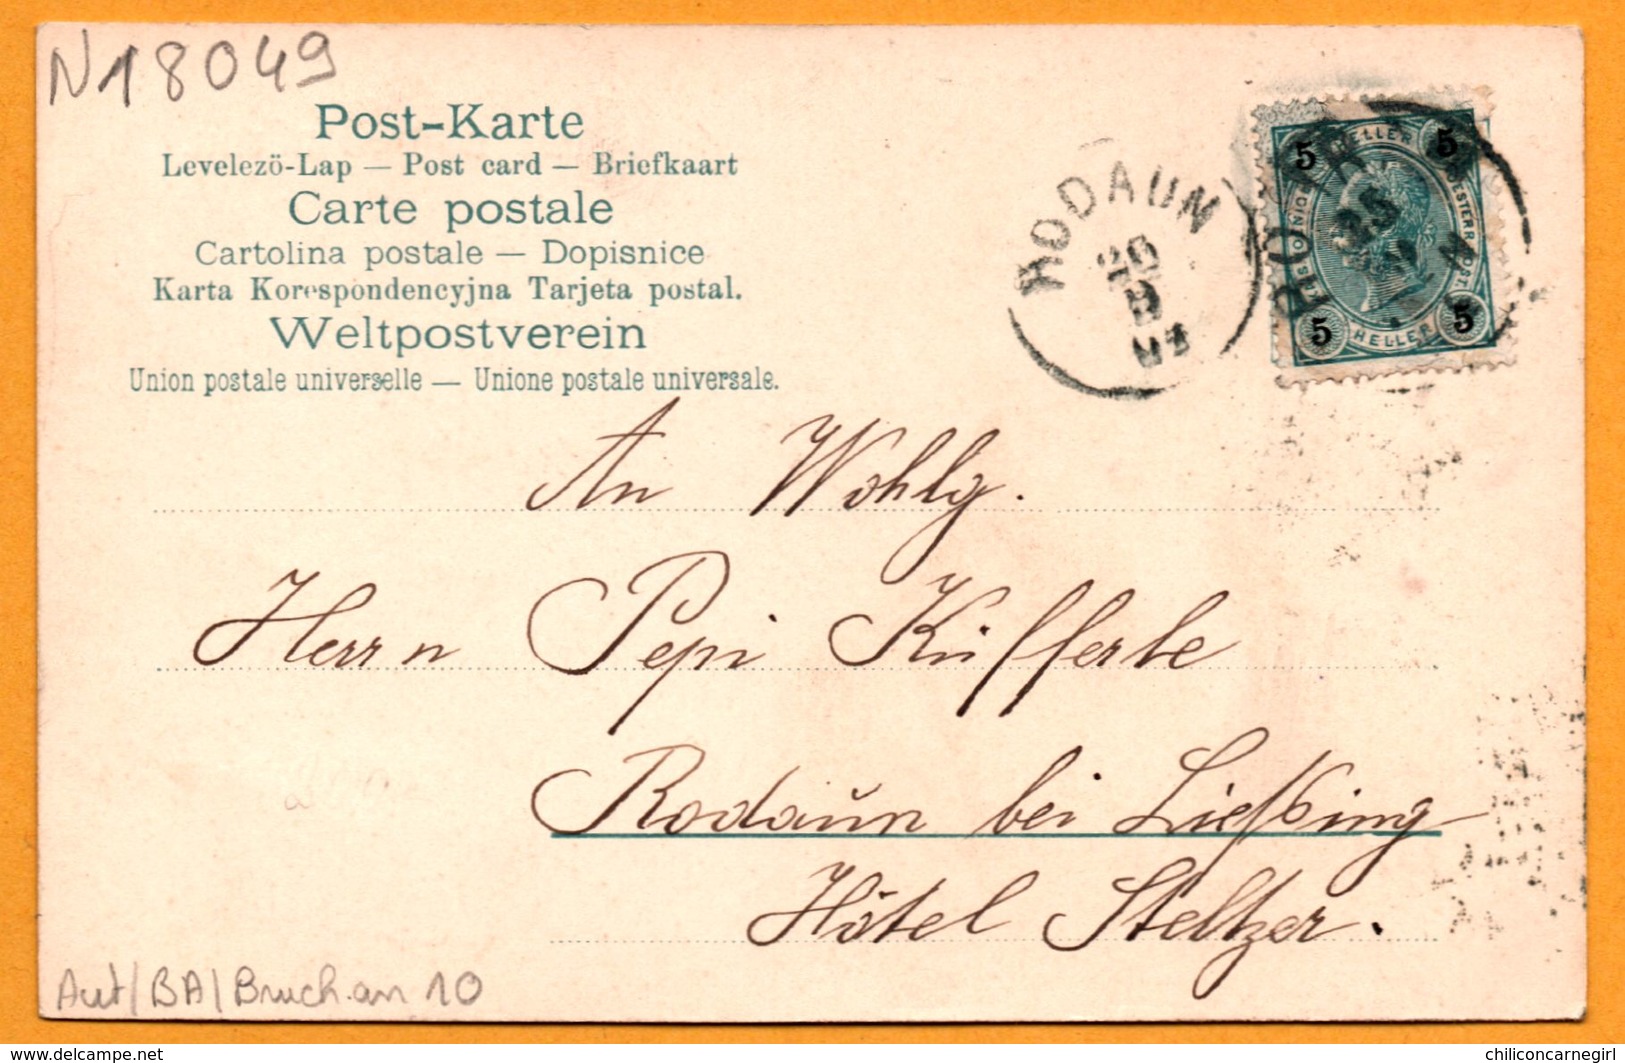 N18049
Post-Karte
Levelező-Lap — Post card — Briefkaart
Carte postale
Cartolina postale — Dopisnice
Karta Korespondencyjna Tarjeta postal.
Weltpostverein
Union postale universelle — Unione postale universale.
RODAUN
5 HELLER 5
5 HELLER 5
An Wohlg.
Herrn Pepi Küfferle
Rodaun bei Ließing
Hôtel Steltzer.
Aut/BA/Bruch.an 10
delcampe.net
chiliconcarnegirl